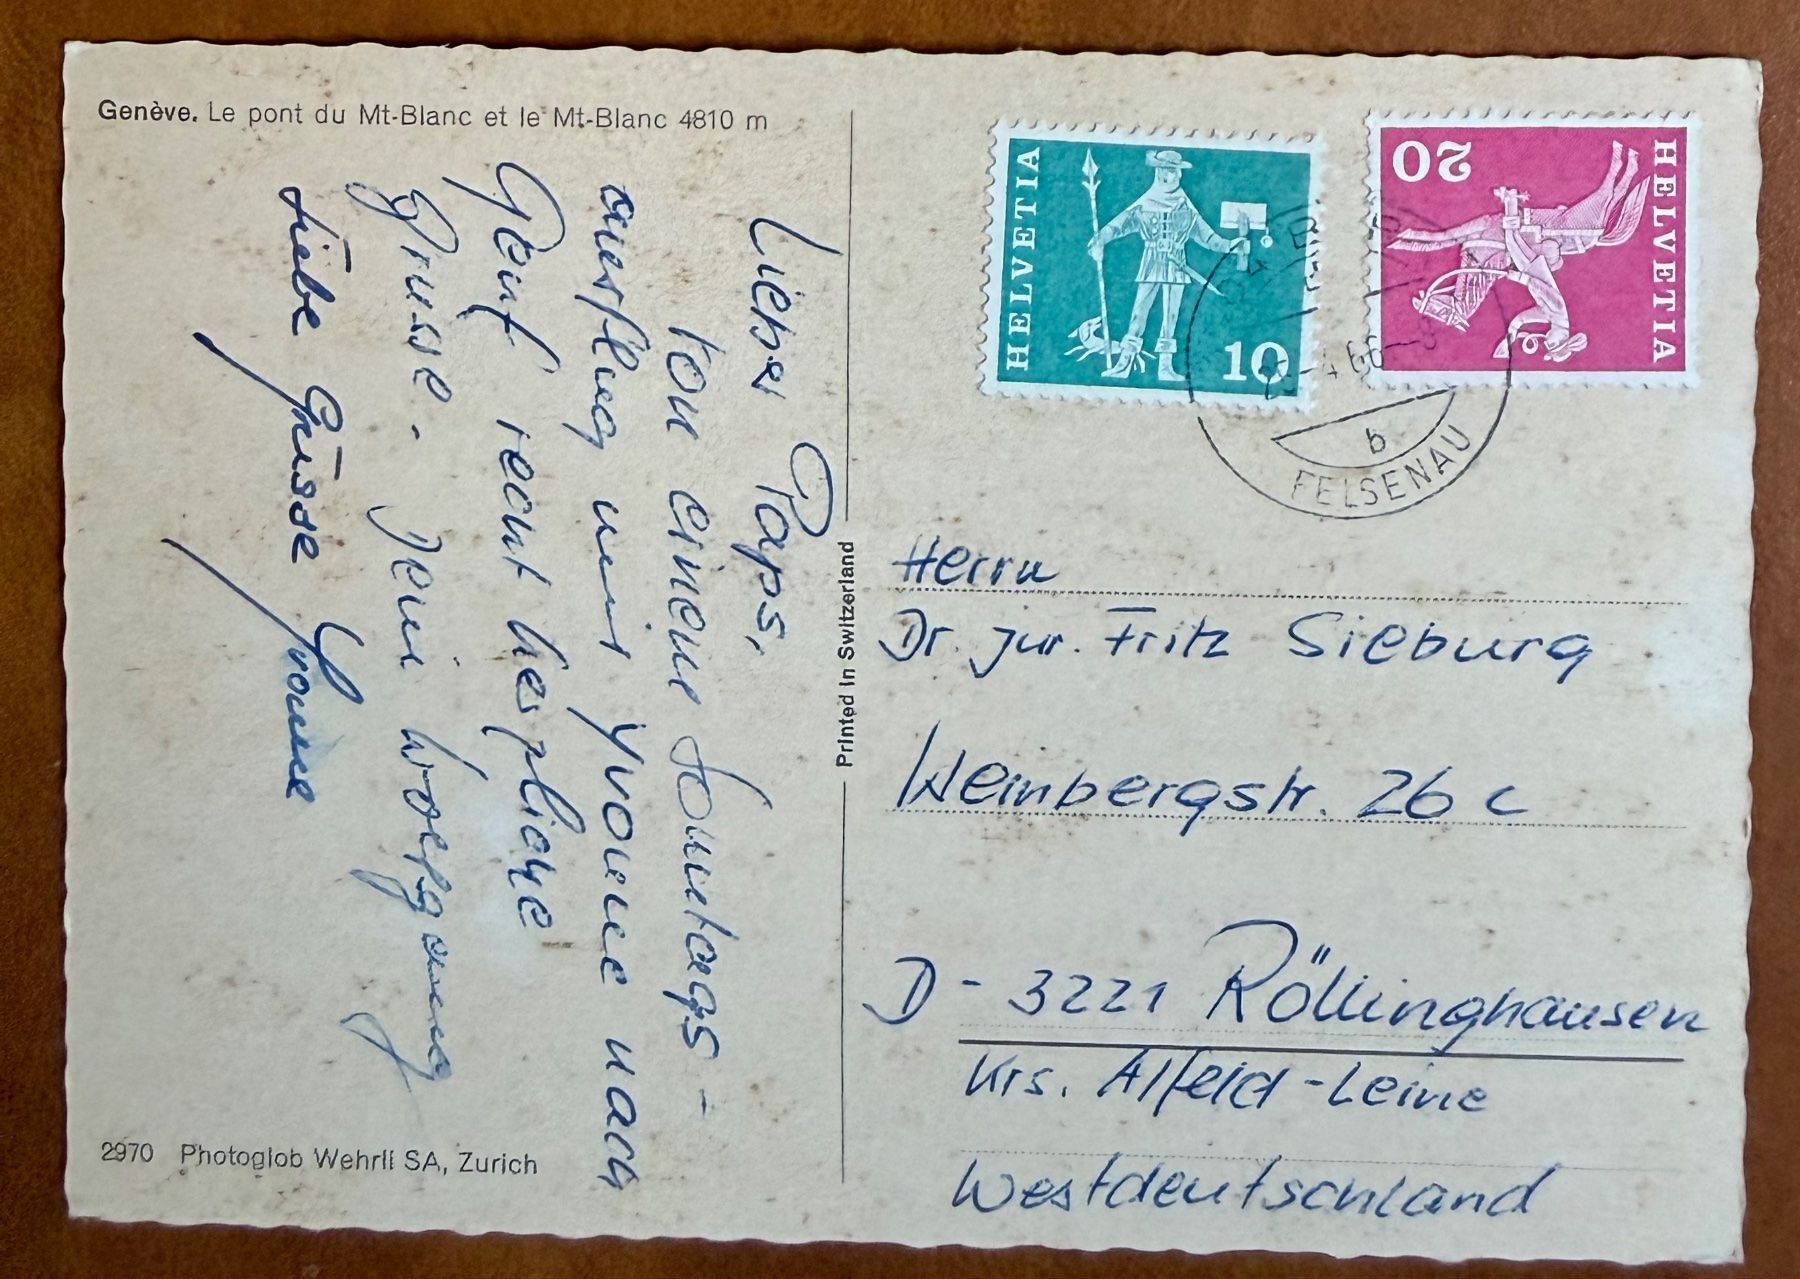 Genève. Le pont du Mt-Blanc et le Mt-Blanc 4810 m
Lieber Paps,
von einem Sonntags-
ausflug mit Yvonne nach
Genf recht herzliche
Grüsse. Dein Wolfgang
Liebe Grüsse Yvonne
2970 Photoglob Wehrli SA, Zurich
Printed in Switzerland
HELVETIA
10
HELVETIA
20
4 66
b
FELSENAU
Herrn
Dr. jur. Fritz Sieburg
Weinbergstr. 26 c
D - 3221 Röllinghausen
Krs. Alfeld-Leine
Westdeutschland